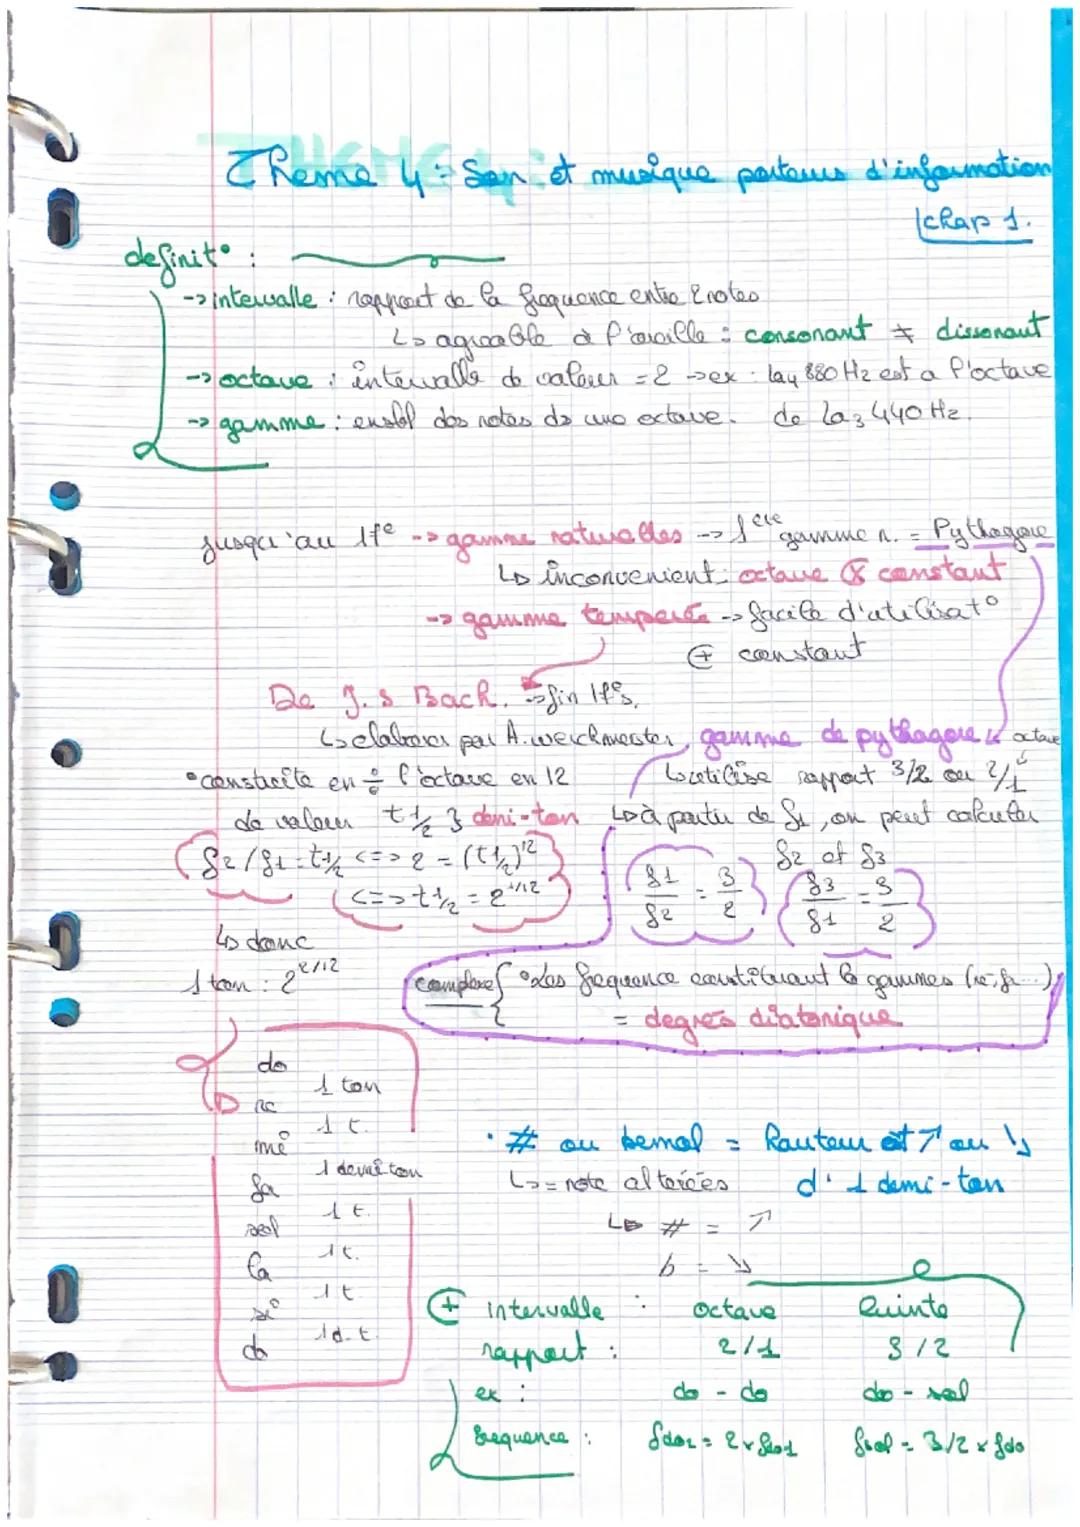 Theme 4 : Son et musique porteurs d'information
chap 1.
definit° :
-> intervalle : rapport de la frequence entre 2 notes
↳ agreable à l'oreille : consonant ≠ dissonant
-> octave : intervalle de valeur = 2 -> ex : la4 880 Hz est a l'octave
de la3 440 Hz.
-> gamme : ensbl des notes ds une octave.
jusqu'au 17e -> gamme naturelles -> 1ere gamme n. = Pythagore
↳ inconvenient : octave constant
-> gamme temperée -> facile d'utilisat°
⊕ constant
De J.S Bach. -> fin 17e s.
↳ elaborer par A. werckmeister
gamme de pythagore
octave
• consticite en ÷ l'octave en 12
de valeur t1/2 } demi-ton
f2/f1 = t1/2 <=> 2 = (t1/2)^12
<=> t1/2 = 2^1/12
↳ donc
1 ton : 2^2/12
↳ utilise rapport 3/2 ou 2/1
↳ à partir de f1, on peut calculer
f2 et f3
f1/f2 = 3/2
f3/f1 = 3/2
complexe { • Les frequence constituant la gammes (ré, fa...)
= degrés diatonique
do
1 ton
re
1 t.
mi
1 demi ton
fa
1 t.
sol
1 t.
la
1 t
si
1 d-t.
do
• # ou bemol = hauteur est ↗ ou ↘
d' 1 demi-ton
↳ = note altérées
↳ # = ↗
b = ↘
⊕ intervalle : octave Quinte
rapport : 2/1 3/2
ex : do - do do - sol
frequence : fdo2 = 2 x fdo1 fsol = 3/2 x fdo